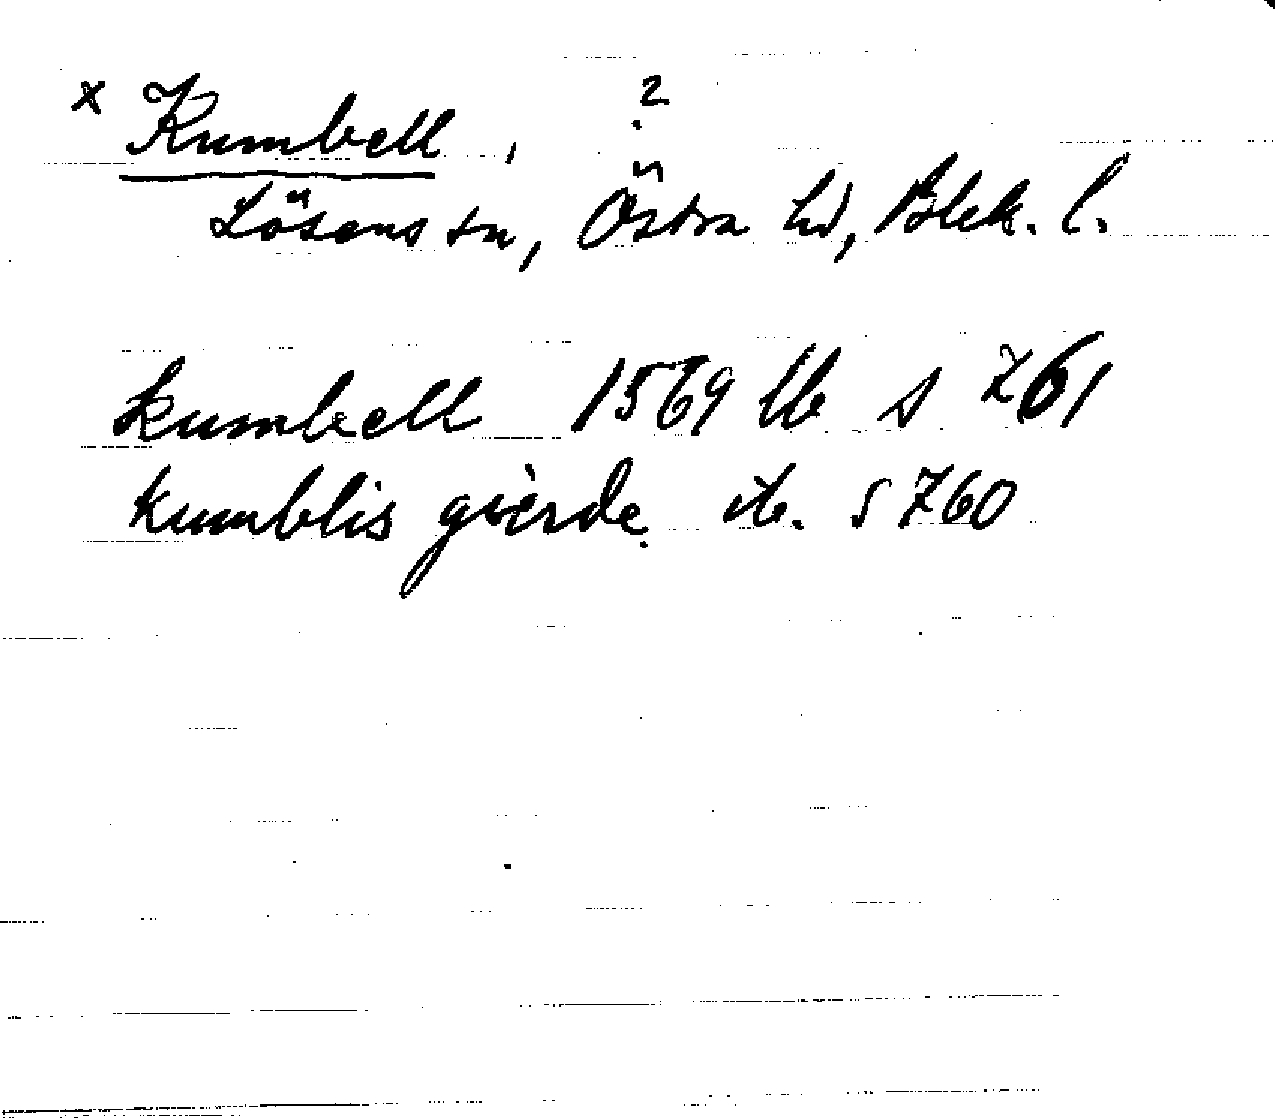 x Kumbell, ?
Lösens sn, Östra hd, Blek. l.
kumbell 1569 lb s 761
kumblis gierde ib. s 760